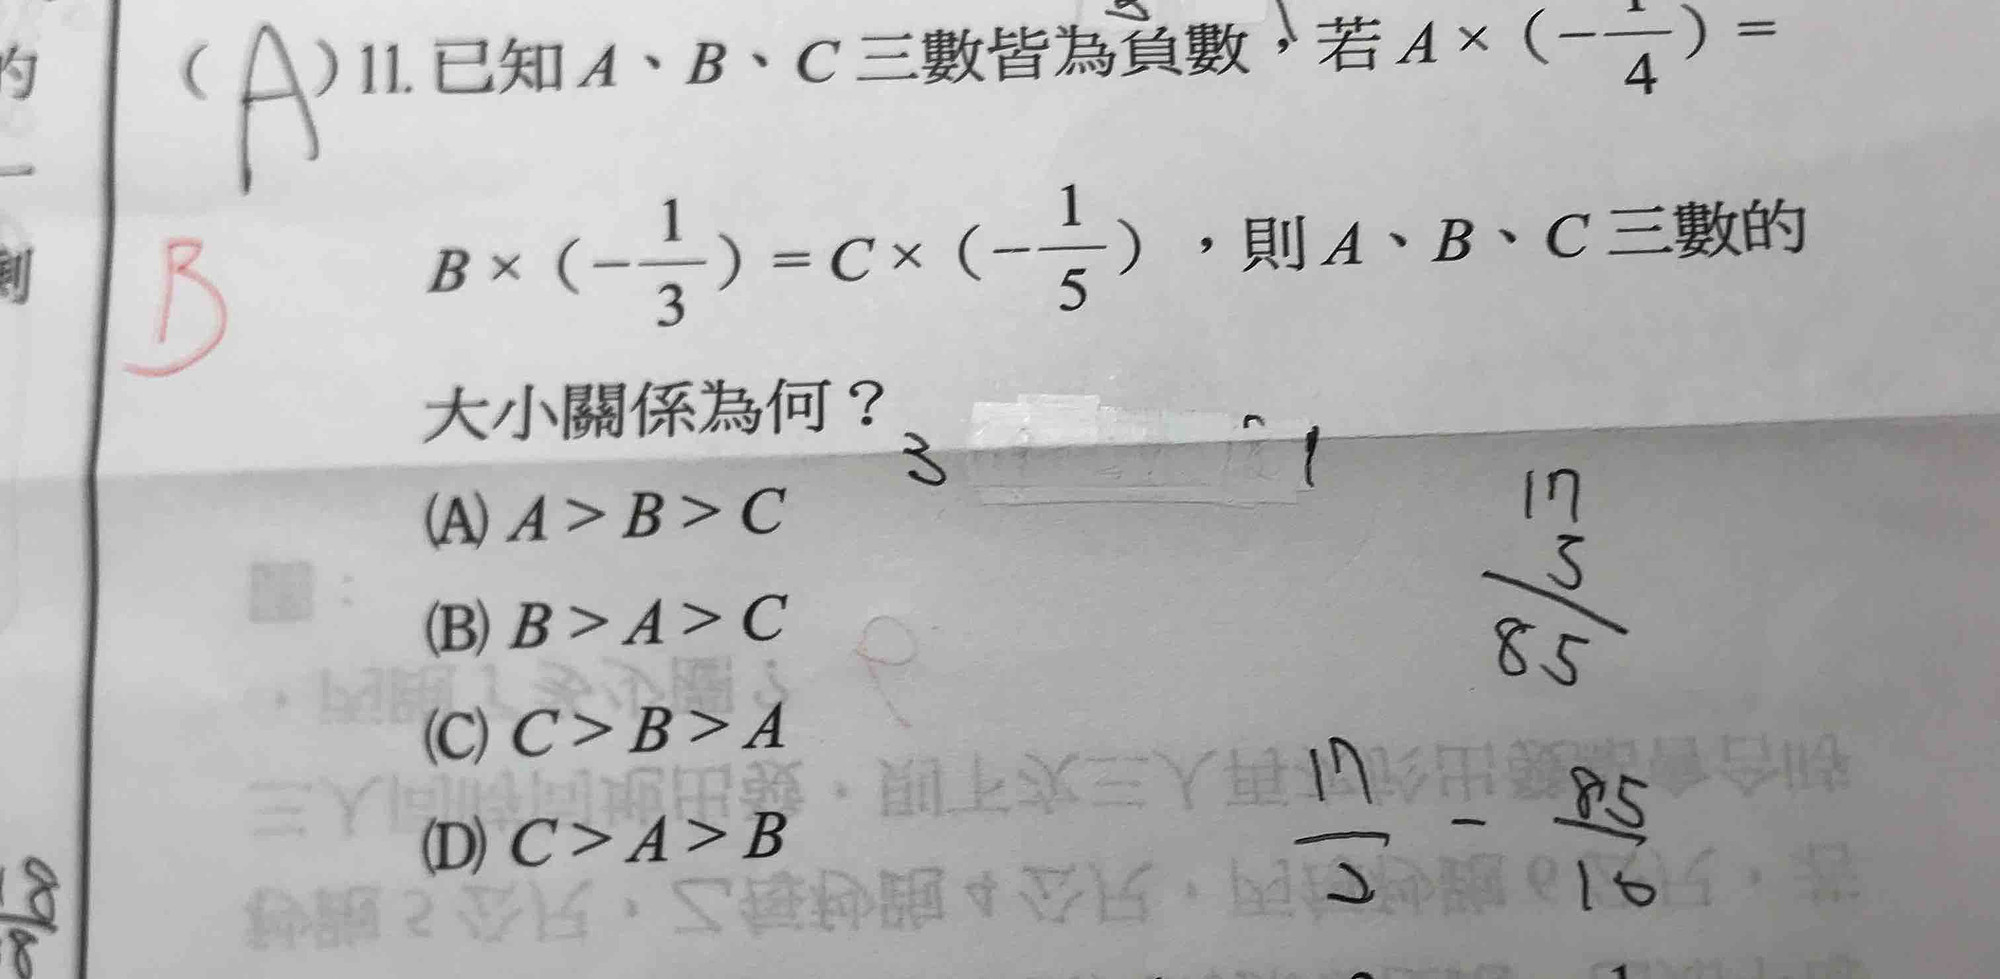 的
(A) 11. 已知 A、B、C 三數皆為負數，若 A × (－1/4) ＝
B × (－1/3) ＝ C × (－1/5)，則 A、B、C 三數的
B
大小關係為何？
3
1
(A) A > B > C
(B) B > A > C
(C) C > B > A
(D) C > A > B
17
5
85
17/2 - 85/16